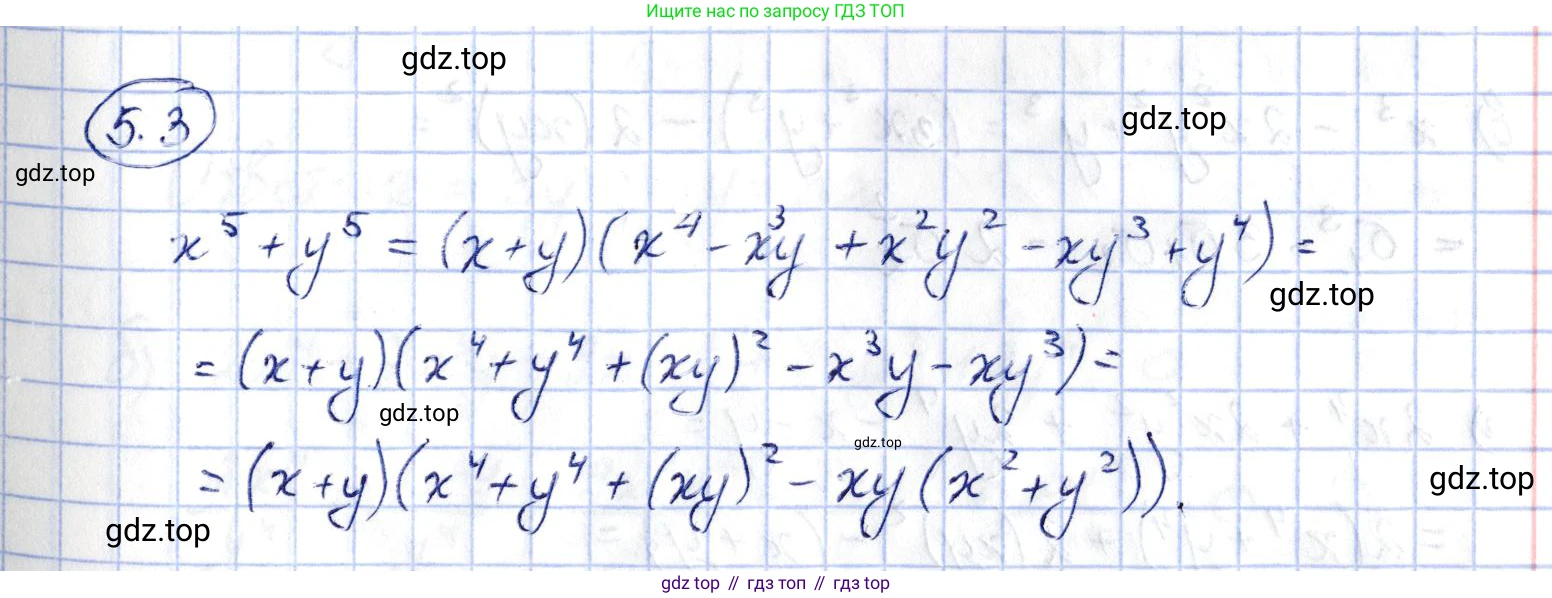 Ищите нас по запросу ГДЗ ТОП
gdz.top
5.3
gdz.top
gdz.top
x⁵ + y⁵ = (x+y)(x⁴ - x³y + x²y² - xy³ + y⁴) =
gdz.top
= (x+y)(x⁴ + y⁴ + (xy)² - x³y - xy³) =
gdz.top
gdz.top
= (x+y)(x⁴ + y⁴ + (xy)² - xy(x² + y²)).
gdz.top
gdz.top
gdz top // гдз топ // гдз top